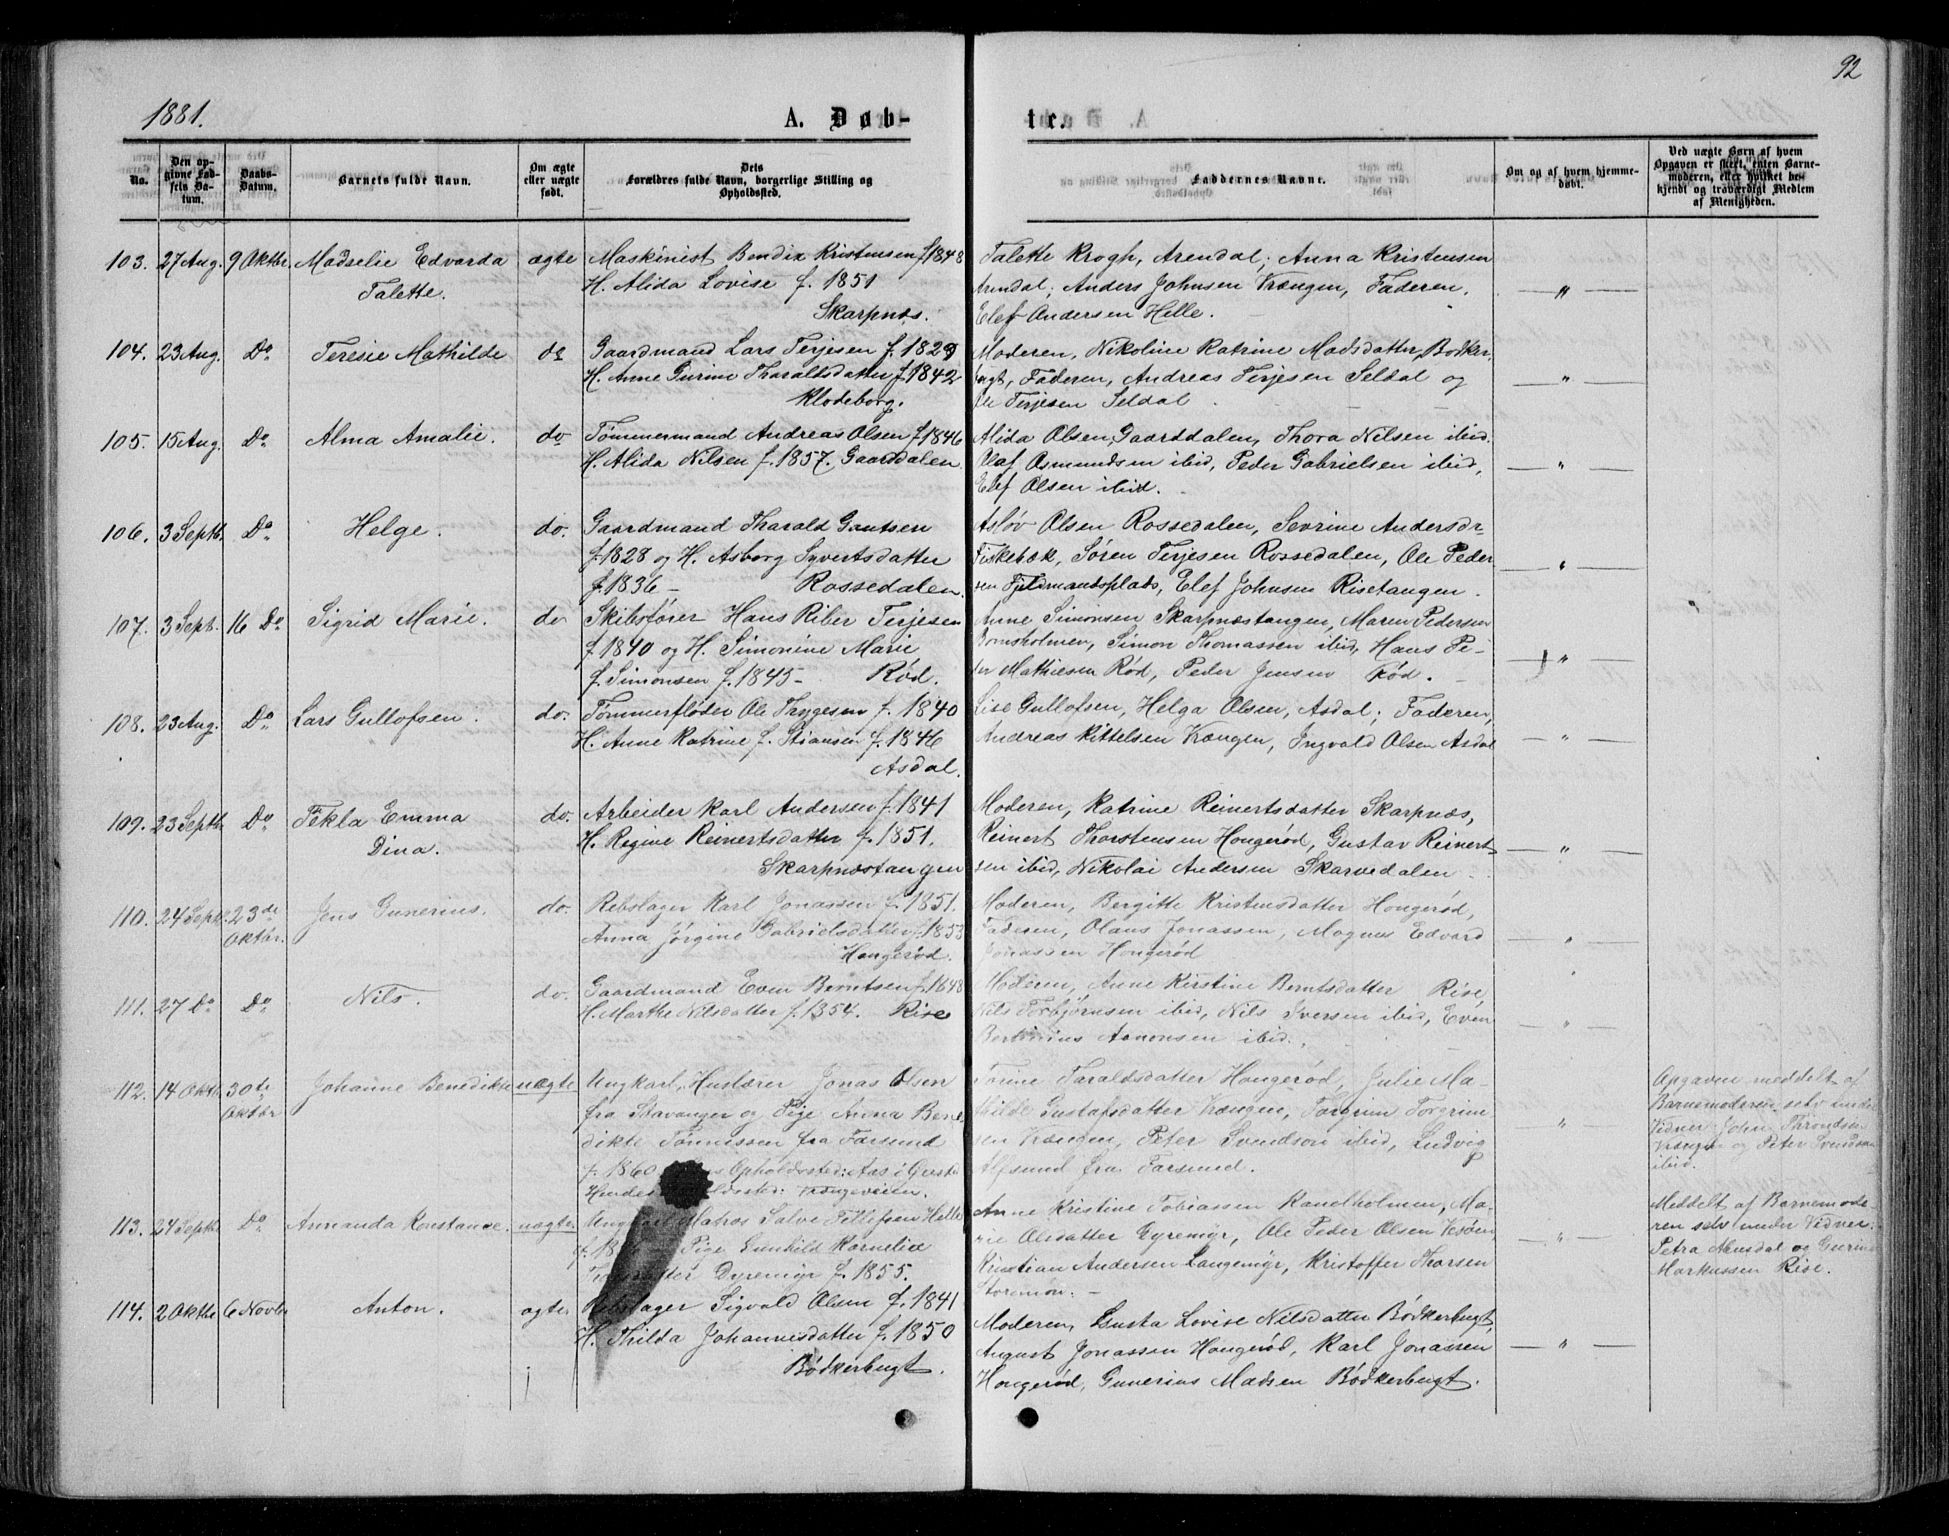 92
1881.
A. Døb-
te.
No.
Den op-
givne Fød-
sels Da-
tum.
Daabs-
Datum.
Barnets fulde Navn.
Om ægte
eller uægte
født.
Dets
Forældres fulde Navn, borgerlige Stilling og
Opholdssted.
Faddernes Navne.
Om og af hvem hjemme-
døbt.
Ved uægte Børn af hvem
Opgaven er skeet, enten Barne-
moderen, eller hvilket be-
kjendt og troværdigt Medlem
af Menigheden.
103. 27 Aug. 9 Oktbr. Madselie Edvarda ægte Maskinist Bendix Kristensen f. 1848
Talette. H. Alida Lovise f. 1851
Skarpnæs.
Talette Krogh, Arendal; Anna Kristensen
Arendal; Anders Johnsen Krængen, Faderen,
Elef Andersen Helle. — " —
104. 23 Aug. Do Teresie Mathilde do Gaardmand Lars Terjesen f. 1829
H. Anne Gurine Tharaldsdatter f. 1842
Klodeborg.
Moderen, Nikoline Katrine Madsdatter Bødker-
bugt, Faderen, Andreas Terjesen Seldal og
Ole Terjesen Seldal. — " —
105. 15 Aug. Do Alma Amalie. do Tømmermand Andreas Olsen f. 1846
H. Alida Nilsen f. 1857. Gaarddalen
Alida Olsen, Gaarddalen, Thora Nilsen ibid.
Olaf Osmundsen ibid, Peder Gabrielsen ibid,
Elef Olsen ibid. — " —
106. 3 Septb. Do Helge. do. Gaardmand Tharald Gautsen
f. 1828 og H. Asborg Syvertsdatter
f. 1836 — Rossedalen.
Asløv Olsen Rossedalen, Sevrine Andersdr
Fiskebæk, Søren Terjesen Rossedalen, Ole Peder
sen Fjeldmandsplads, Elef Johnsen Risetangen. — " —
107. 3 Sept. 16 Do Sigrid Marie. do Skibsfører Hans Riber Terjesen
f. 1840 og H. Simonine Marie
f. Simonsen f. 1845 — Rød.
Anne Simonsen Skarpnæstangen, Maren Pedersen
Bomsholmen, Simon Thomassen ibid, Hans Pe-
der Mathiesen Rød, Peder Jensen Rød. — " —
108. 23 Aug. Do Lars Gullofsen. do. Tømmerfløder Ole Trygesen f. 1840
H. Anne Katrine f. Stiansen f. 1846
Asdal.
Lise Gullofsen, Helga Olsen, Asdal; Faderen,
Andreas Kittelsen Krængen, Ingvald Olsen Asdal — " —
109. 23 Septb. Do Tekla Emma do. Arbeider Karl Andersen f. 1841
Dina. H. Regine Reinertsdatter f. 1851.
Skarpnæstangen
Moderen, Katrine Reinertsdatter Skarpnæs,
Reinert Thorstensen Hongerød, Gustav Reinert-
sen ibid, Nikolai Andersen Skarvedalen. — " —
110. 24 Septb. 23de Jens Gunerius. do. Rebslager Karl Jonassen f. 1851.
Oktbr. Anna Jørgine Gabrielsdatter f. 1853
Hongerød.
Moderen, Bergitte Kristensdatter Hongerød,
Faderen, Olaus Jonassen, Magnus Edvard
Jonassen Hongerød — " —
111. 27 Do Do Nils. do. Gaardmand Even Berntsen f. 1848
H. Marthe Nilsdatter f. 1854. Rise
Moderen, Anne Kirstine Berntsdatter Rise,
Nils Torbjørnsen ibid, Nils Iversen ibid, Even
Aanonsen ibid. "
112. 14 Oktbr. 30te Johanne Benedikte uægte Ungkarl, Huslærer Jonas Olsen
Oktbr fra Stavanger og Pige Anna Bene
dikte Tønnessen fra Farsund
f. 1860. Opholdssted: Aas i
Hendes Opholdssted: Krængeveien.
Tonine Taraldsdatter Hongerød, Julie Ma-
thilde Gustafsdatter Krængen, Torgrim Torgrim
sen Krængen, Peter Svendsen ibid, Ludvig
Alfsund fra Farsund. "
Opgaven meddelt af
Barnemoderen selv under
Vidner John Throndsen
Krængen og Peter Svendsen
ibid.
113. 24 Septb. Do Annanda Konstance. uægte Ungkarl Matros Salve Tellefsen Helle
f. Pige Gunhild Kornelie
Dyremyr f. 1855.
Anne Kristine Tobiassen Kandholmen, Ma-
rie Olsdatter Dyremyr, Ole Peder Olsen
Kristian Andersen Langemyr, Kristoffer Thorsen
Storemon. — " —
Meddelt af Barnemode-
ren selv under Vidner:
Petra Asdal og Gurine
Markussen Rise.
114. 2 Oktbr 6 Novbr Anton. ægte Rebslager Sigvald Olsen f. 1841
H. Thilda Johannesdatter f. 1850
Bødkerbugt.
Moderen, Gusta Lovise Nilsdatter Bødkerbugt,
August Jonassen Hongerød, Karl Jonassen
Hongerød, Gunerius Madsen Bødkerbugt. — " —